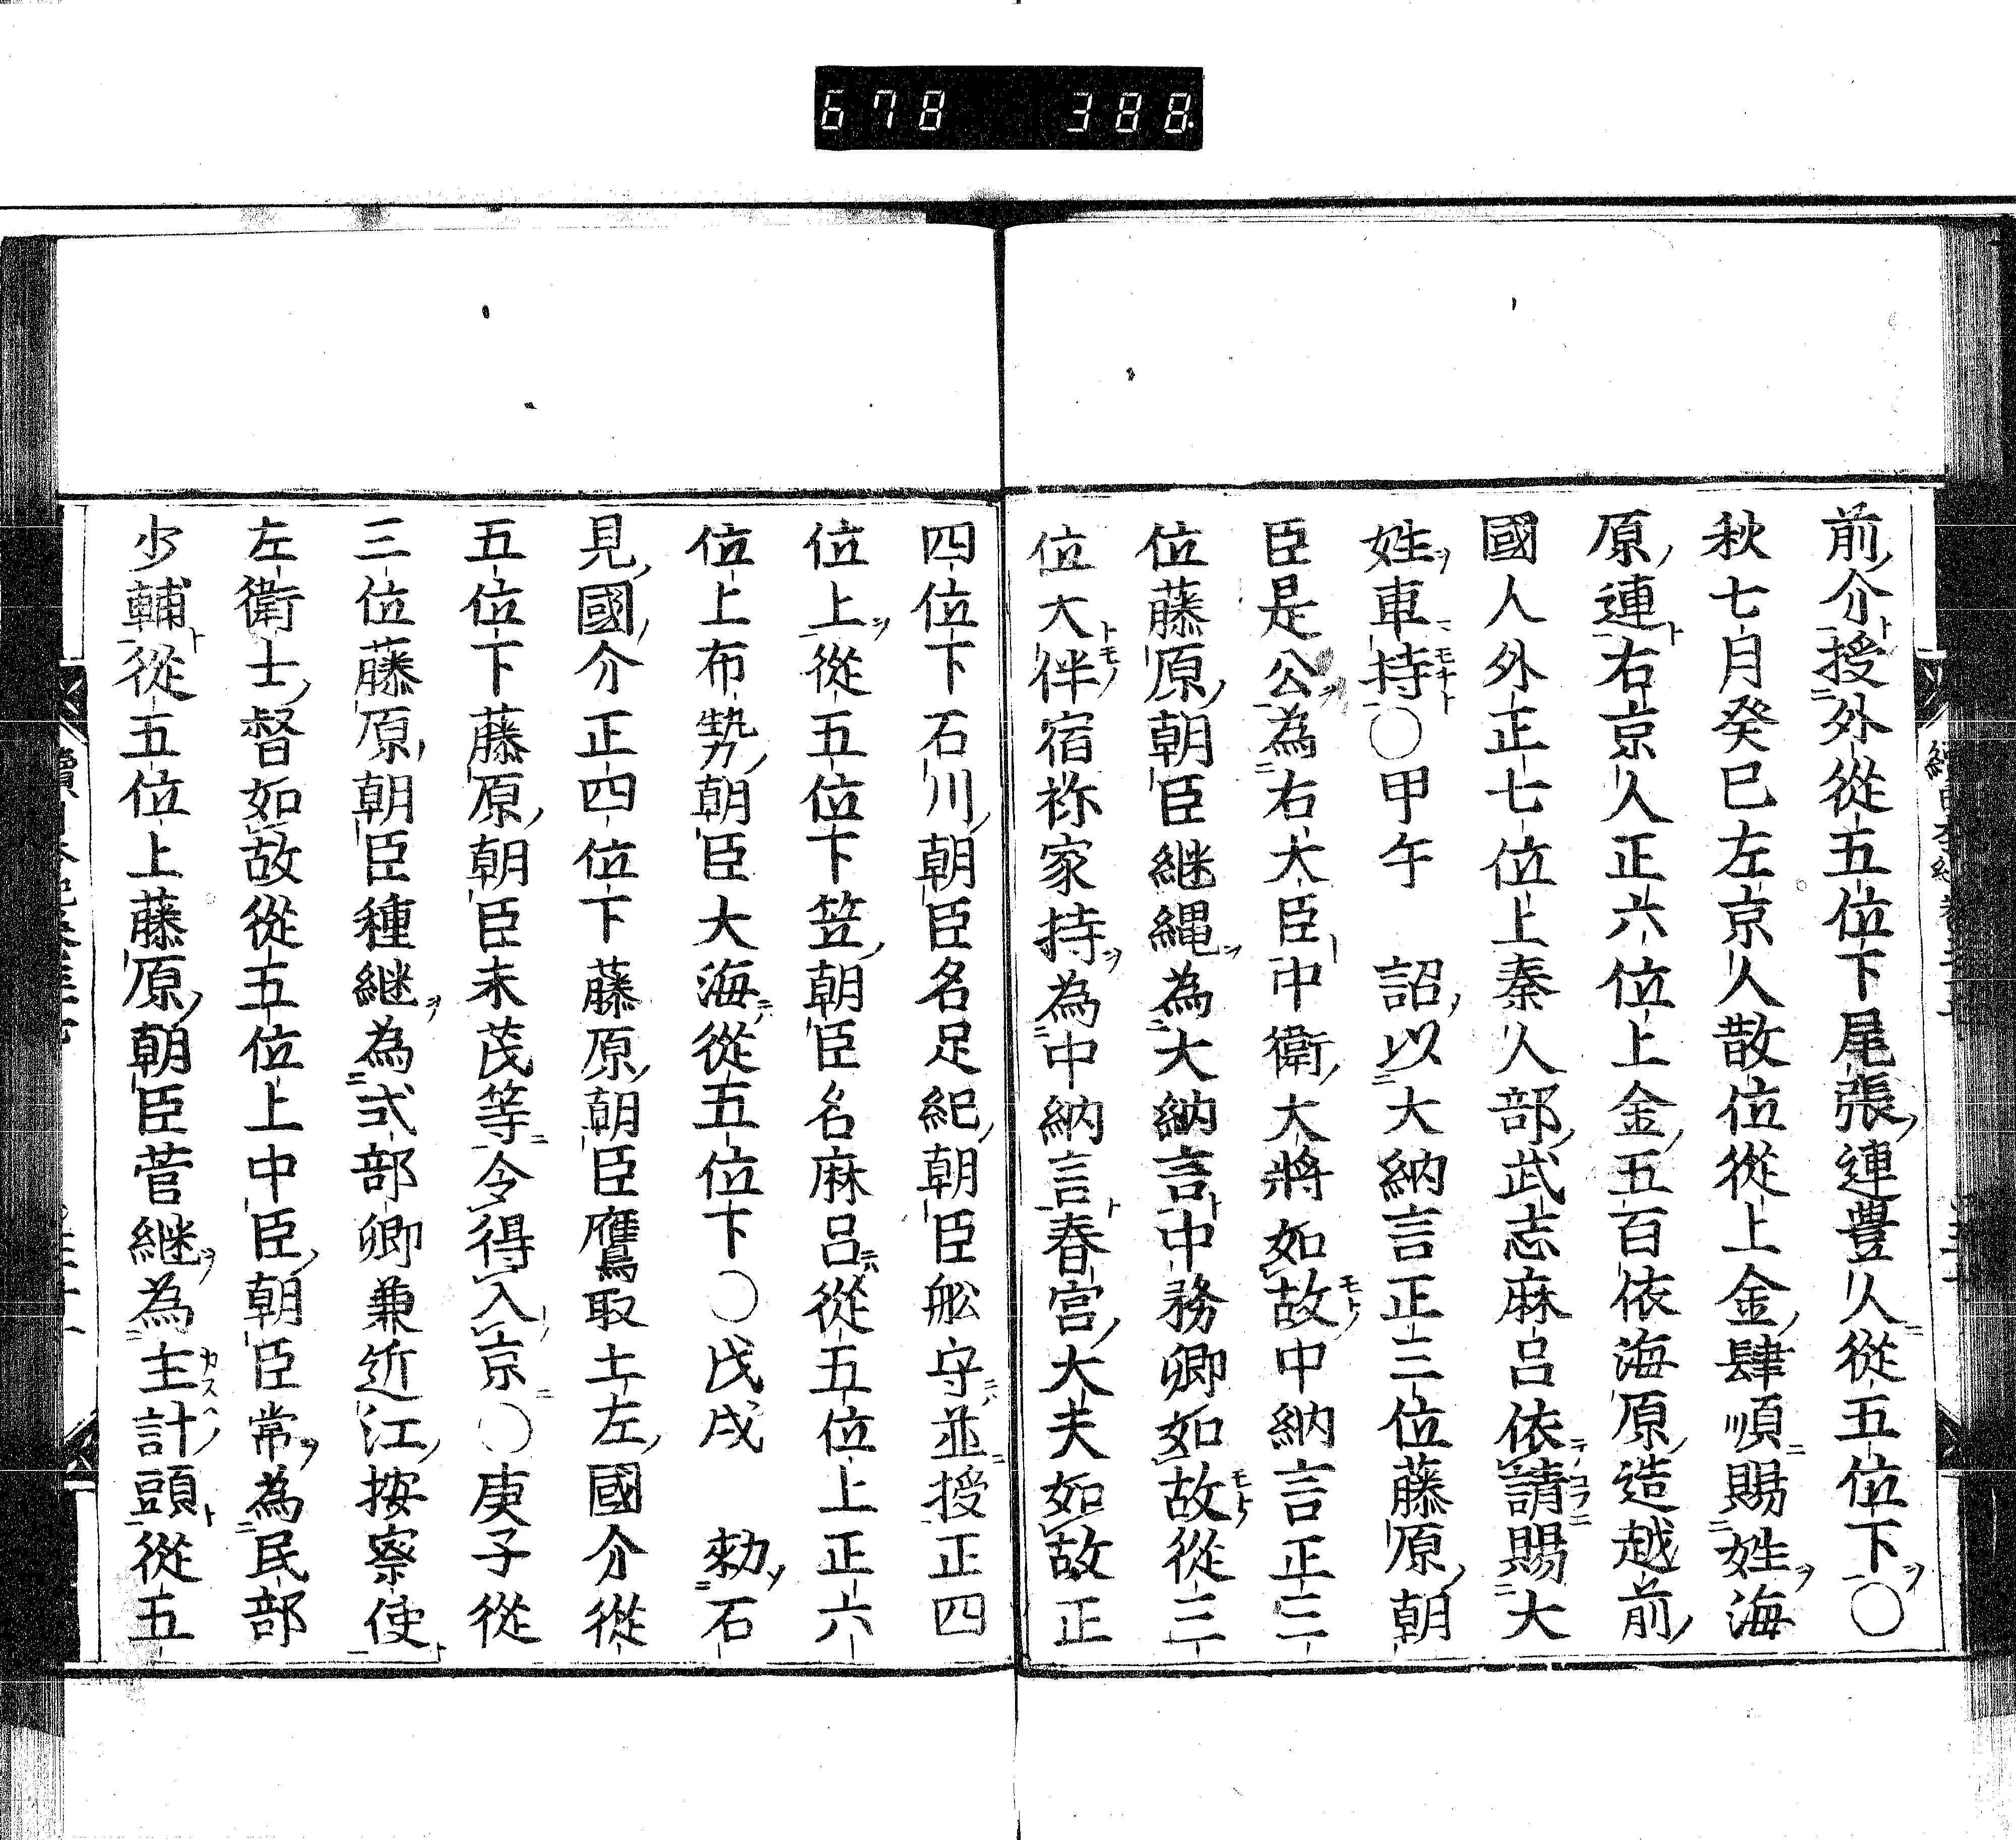 678 388
前介授外從五位下尾張連豊人從五位下○
秋七月癸巳左京人散位從上金肆順賜姓海
原連右京人正六位上金五百依海原造越前
國人外正七位上秦人部武志麻呂依請賜大
姓車持○甲午 詔以大納言正三位藤原朝
臣是公為右大臣中衛大將如故中納言正三
位藤原朝臣継縄為大納言中務卿如故從三
位大伴宿祢家持為中納言春宮大夫如故正
四位下石川朝臣名足紀朝臣舩守並授正四
位上從五位下笠朝臣名麻呂從五位上正六
位上布勢朝臣大海從五位下○戊戌 勅石
見國介正四位下藤原朝臣鷹取土左國介從
五位下藤原朝臣末茂等令得入京○庚子從
三位藤原朝臣種継為式部卿兼近江按察使
左衛士督如故從五位上中臣朝臣常為民部
少輔從五位上藤原朝臣菅継為主計頭從五